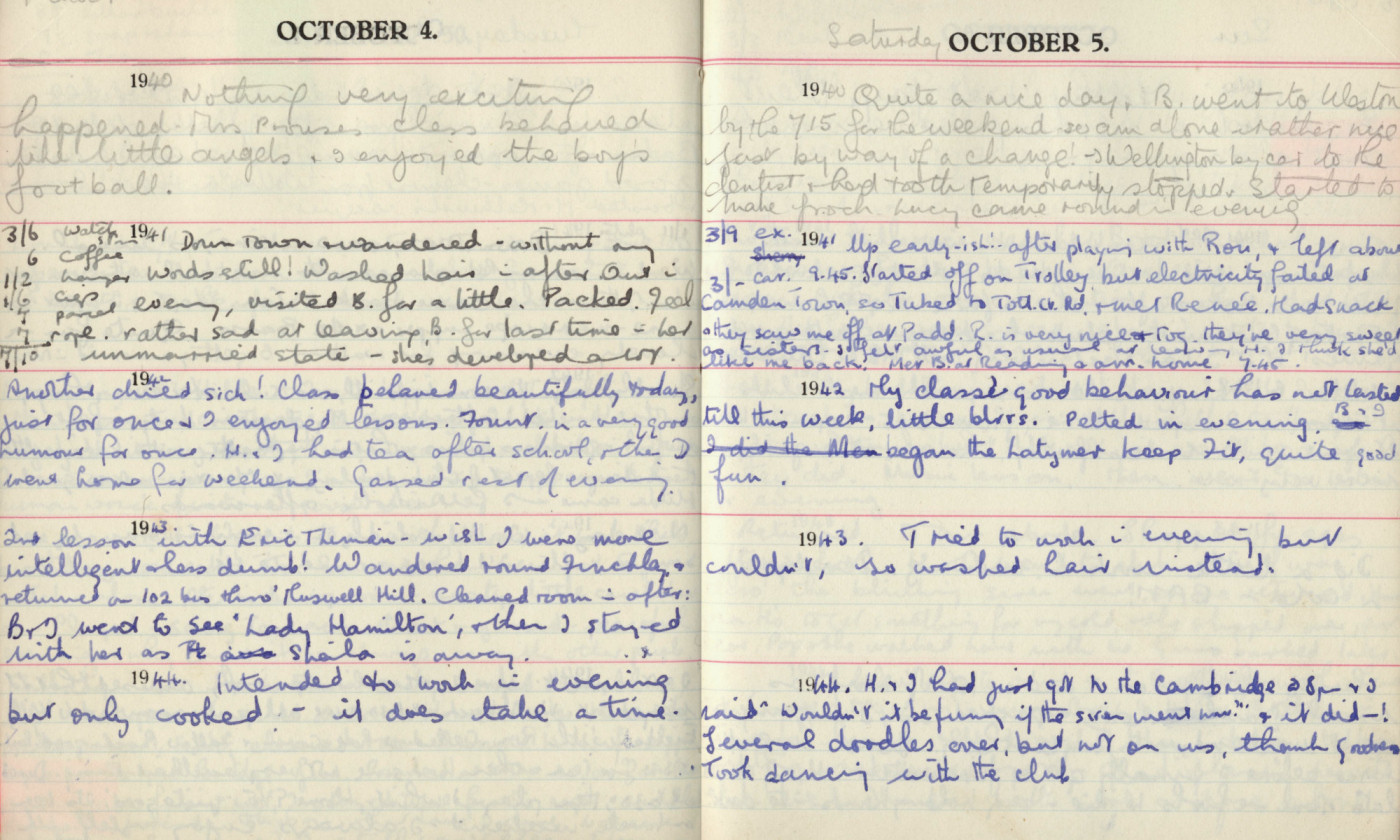 OCTOBER 4.
1940 Nothing very exciting
happened. Mrs Prouses class behaved
like little angels. I enjoyed the boys
football.
3/6 watch 1941 Down Town & wandered - without any
6 coffee
1/2 hanger words still! Washed hair in after. Out in
1/6 cups evening, visited B. for a little. Packed. Feel
4 parcel
7 rope. rather sad at leaving B. for last time in her
7/10 unmarried state - she's developed a lot.
1942 Another died sich! Class behaved beautifully today,
just for once & I enjoyed lessons. Fount. in a very good
humour for once. H. & I had tea after school, & then I
went home for weekend. Gassed rest of evening.
1943 2nd lesson with Eric Thiman - wish I were more
intelligent & less dumb! Wandered round Finchley, &
returned on 102 bus thro' Muswell Hill. Cleaned room in after:
B & I went to see 'Lady Hamilton', & then I stayed
with her as Sheila is away.
1944. Intended to work in evening
but only cooked - it does take a time.
Saturday OCTOBER 5.
1940 Quite a nice day. B. went to Weston
by the 7 15 for the weekend so am alone & rather nice
just by way of a change! - Wellington by car to the
dentist & had tooth temporarily stopped. Started to
make frock. Lucy came round in evening
3/9 ex. 1941 Up early-ish after playing with Ron, & left about
sherry
3/- car. 9.45. Started off on Trolley but electricity failed at
Camden Town, so Tubed to Tott. Ct. Rd. & met Renée. Had snack
& they saw me off at Padd. R. is very nice & Tog. they're very sweet
as sisters. I felt awful as usual at leaving H. I think she'd
like me back. Met B. at Reading & arr. home 7.45.
1942 My class's good behaviour has not lasted
till this week, little blrrs. Petted in evening. B & I
I did the Men began the Latymer Keep Fit, quite good
fun.
1943. Tried to work in evening but
couldn't, so washed hair instead.
1944. H. & I had just got to the Cambridge at 8pm & I
said "Wouldn't it be funny if the siren went now"! & it did -!
Several doodles over, but not on us, thank goodness
Took dancing with the club